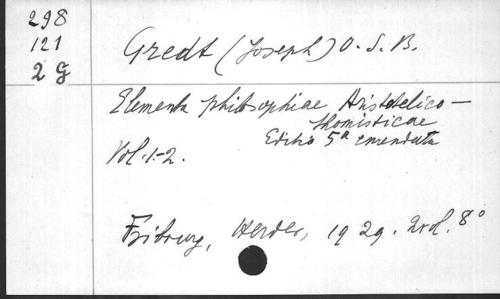 298
121
2 G
Gredt (Joseph) O. S. B.
Elementa philosophiae Aristotelico-
thomisticae
Editio 5a emendata
Vol. 1-2.
Friburg, Herder, 1929. 2vol. 8°